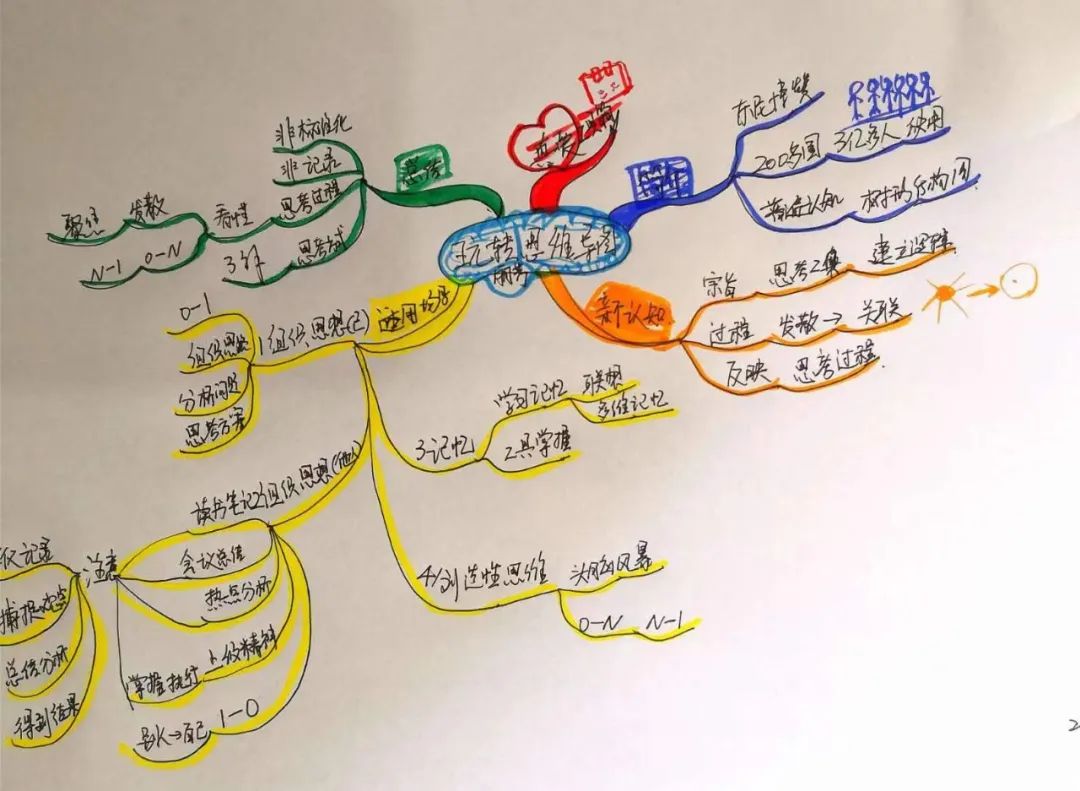 玩转思维导图
思考
东尼博赞
200多国 3亿多人 使用
树状的结构图
新认知
宗旨 思考工具
过程 发散→关联
反映 思考过程
总结
非标准化
非记录
思考过程
看懂
发散
聚焦
0-N
N-1
思考方式
适用场景
1组织思想(己)
0-1
组织思路
分析问题
思考方案
读书笔记 2组织思想(他人)
会议总结
热点分析
上级精神
掌握执行
别人→自己
1-0
注意
记录
捕捉
总结分析
得到结果
3记忆
学习记忆
联想
多维记忆
工具掌握
4创造性思维
头脑风暴
0-N N-1
2